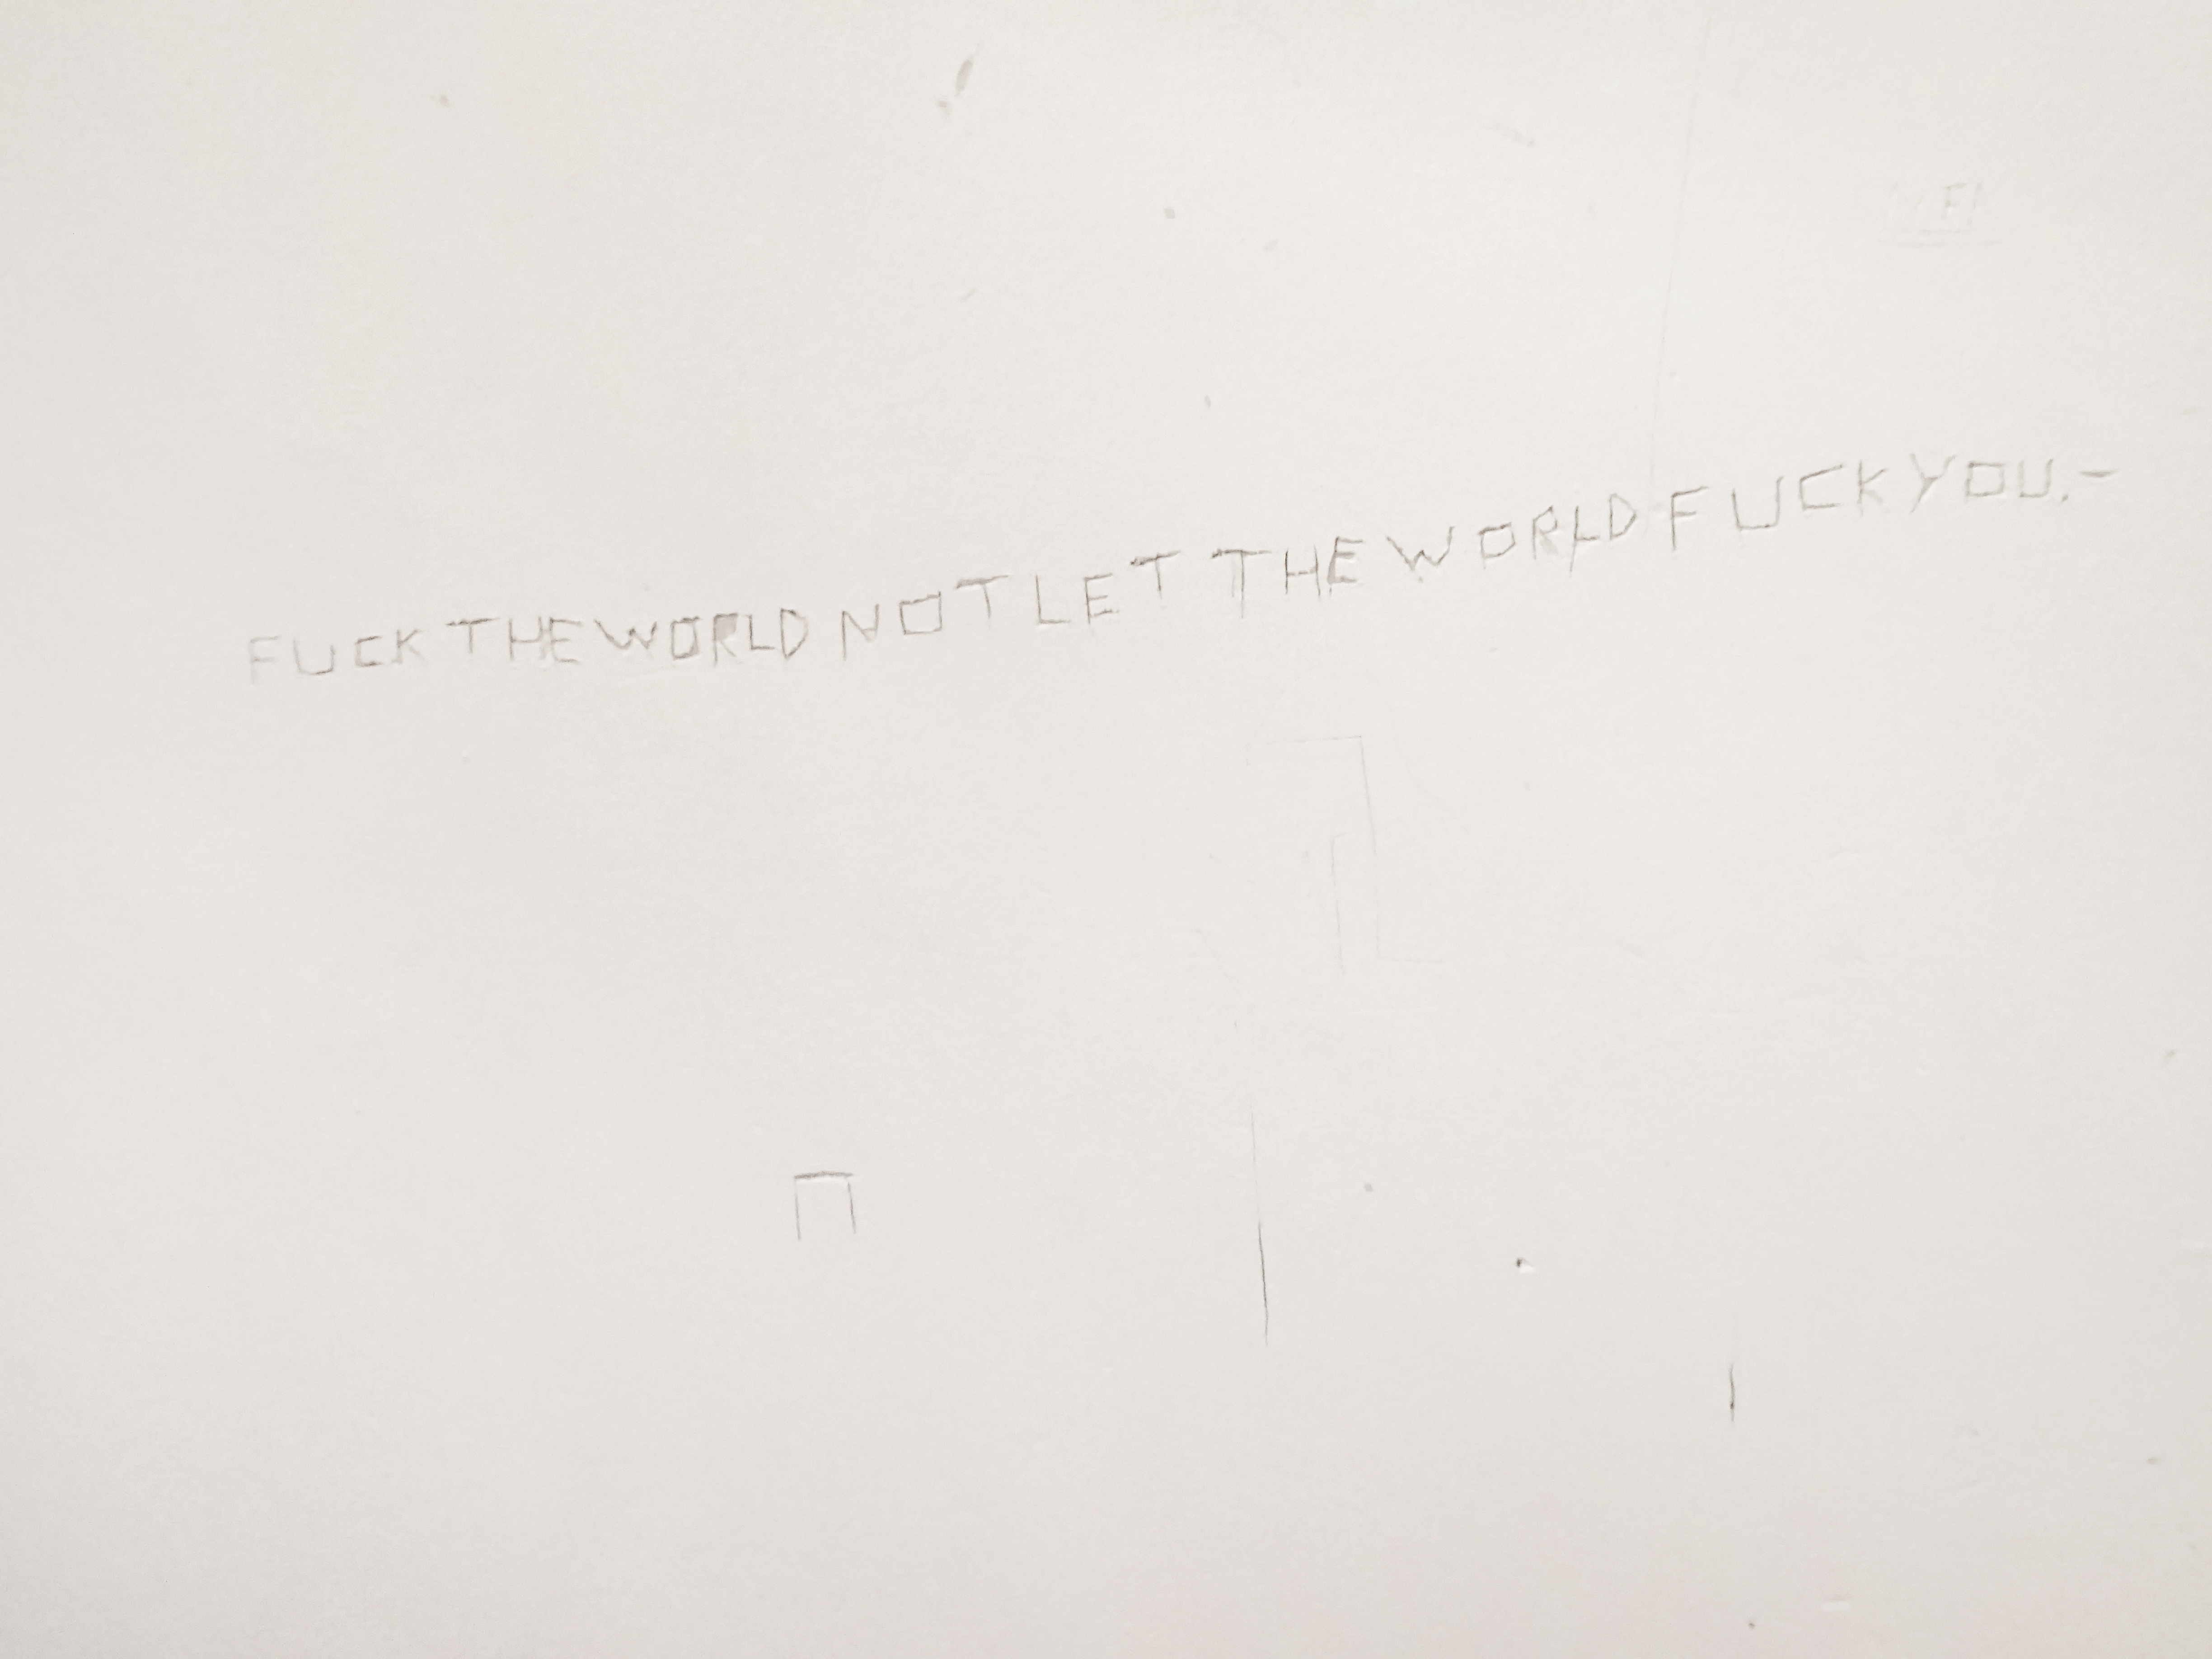 FUCK THE WORLD NOT LET THE WORLD FUCK YOU.-